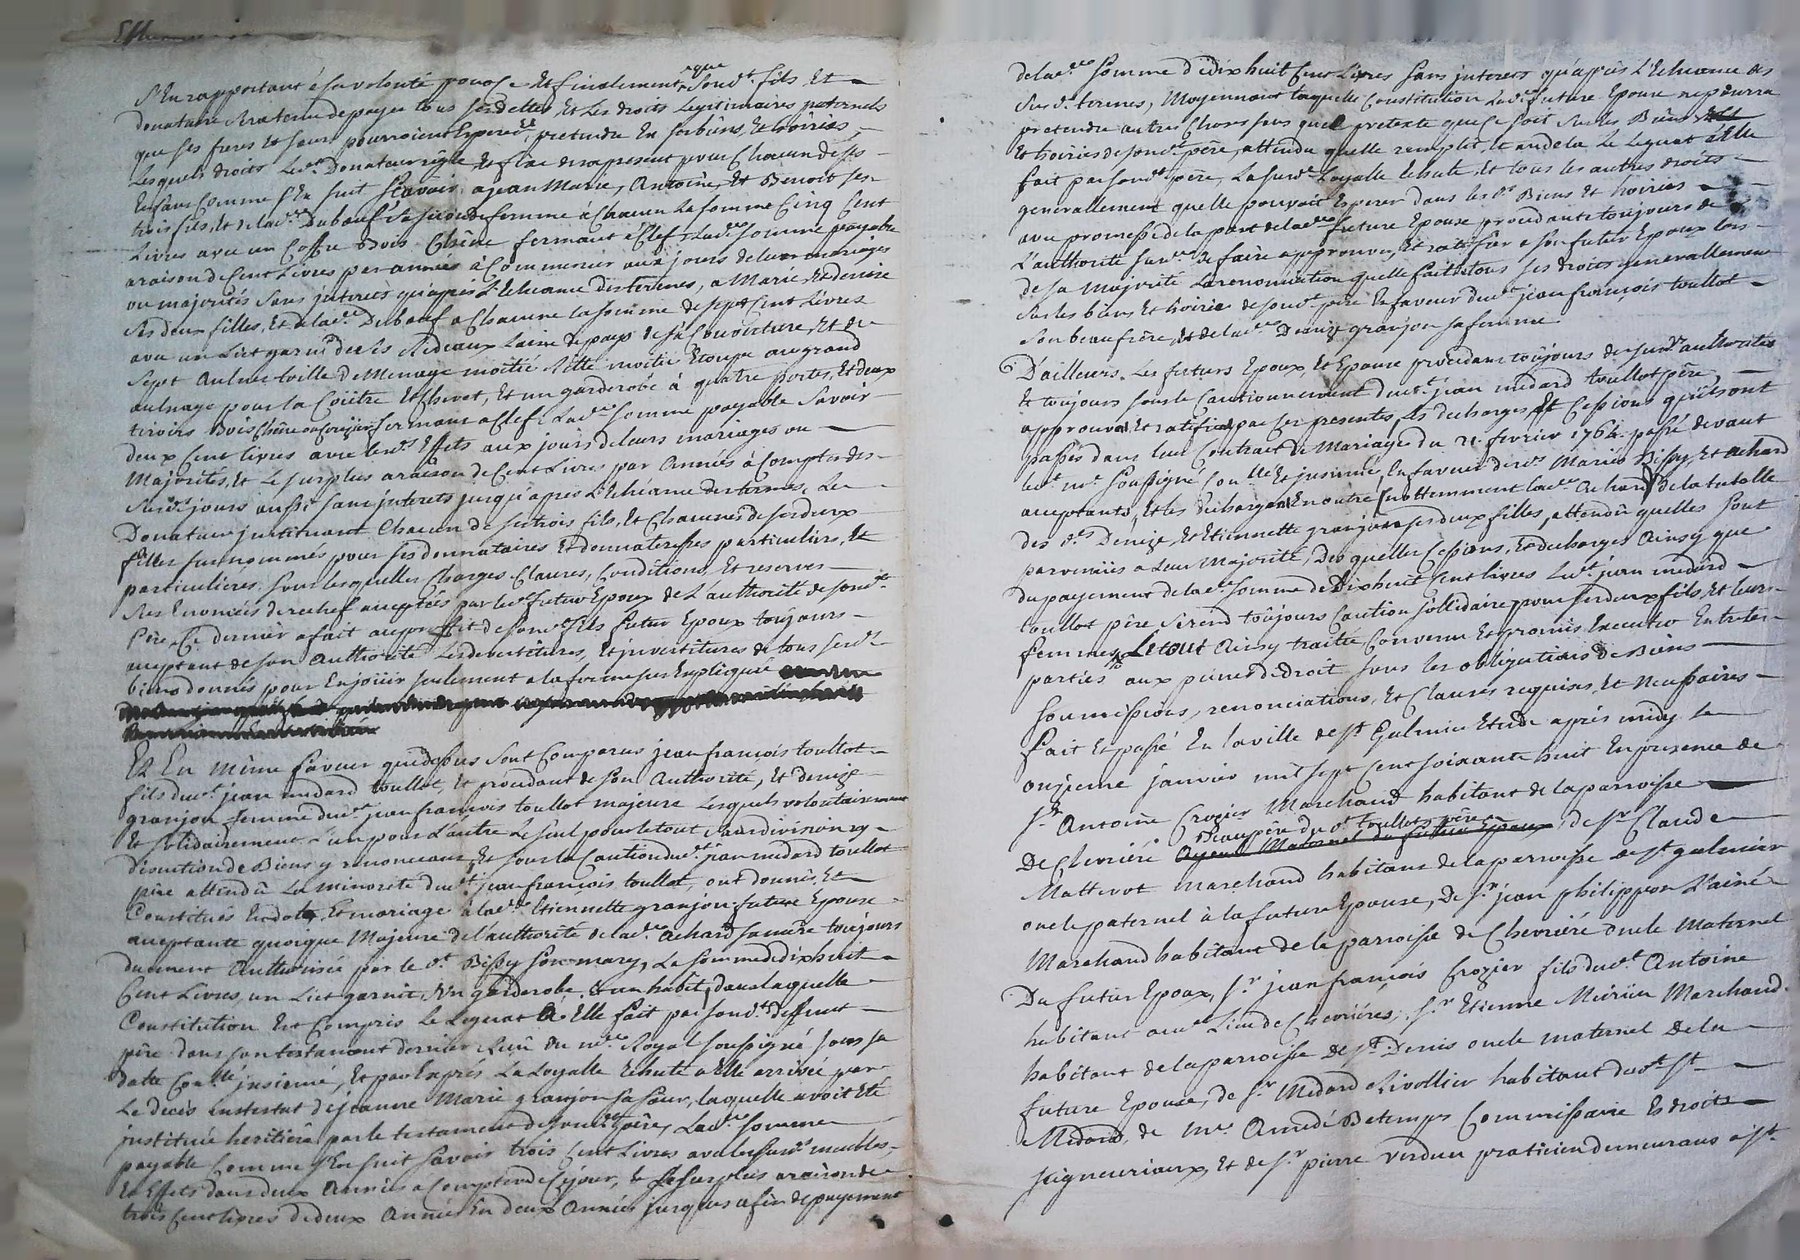 s'En rapportant à sa volonté pour Ce Et finalement que sond.t fils Et
donataire sera tenu de payer tous ses dettes Et Les droits Legitimaires paternels
que ses freres Et sœurs pourroient Esperer Et pretendre En ses biens Et hoiries,
Lesquels droits Led.t Donateur règle Et fixe des apresent pour Chacun de ses
Enfans Comme s'En suit sçavoir a jean Marie, Antoine, Et Benoit ses
trois fils, Et de lad.e Duboeuf sa seconde femme à Chacun La somme Cinq Cent
Livres avec un Coffre Bois Chêne fermant à Clef Lad.e somme payable
a raison de Cent Livres par années à Commencer aux jours de leurs mariages
ou majorités sans jnterets qu'après L'Echeance des termes, a Marie, Et denise
ses deux filles, Et a lad.e Duboeuf a Chacune la somme de sept Cent Livres
avec un Lict garni de ses Rideaux Laine de pays de sa Couverture, Et de
sept Aulnes toille de Menage moitié Ritte moitié Etoupe au grand
aulnage pour la Coitre Et Chevet, Et un garderobe à quatre portes, Et deux
tiroirs Bois Chêne ou Cerizier fermant a Clef, Lad.e somme payable Savoir
deux Cent livres avec les d.s Effets aux jours de leurs mariages ou
Majorités, Et Le surplus a raison de Cent Livres par Années à Compter des
susd.s jours aussi sans jnterets jusqu'apres L'Echéance des termes, Le
Donateur jnstituant Chacun de ses trois fils, Et Chacunes de ses deux
filles surnommés pour ses donnataires Et donnateresses particuliers, Et
particulieres. sous lesquelles Charges Clauses, Conditions, Et reserves
Res Enoncées de rechef acceptées par led.t futur Epoux de L'authorité de sond.t
Père Ce dernier a fait au profit de sond.t fils futur Epoux toujours
acceptant de son Authorité Les devestitures, Et jnvestitures de tous sesd.s
biens donnés pour En jouir seulement a la forme sus Expliquée
Et En même faveur qui dessus sont Comparus jean francois toullot
fils dud.t jean medard toullot, Et procedant de son Authorité, Et denize
granjon femme dud.t jean francois toullot majeure Lesquels volontairement
Et solidairement L'un pour L'autre Le seul pour le tout sans division ny
Discution de Biens y renonceant, Et sous la Caution dud.t jean medard toullot
père attendû La minorité dud.t jean francois toullot, ont donnés, Et
Constitués En dot, Et mariage à lad.e Etiennette granjon future Epouse
acceptante quoique Majeure de l'authorité de lad.e Achard sa mère toujours
dument Authorisée par le s.r Bissy son mary, La somme de dix huit
Cent Livres, un Lict garnit, un garderobe, & un habit, dans laquelle
Constitution Est Compris Le Leguat A Elle fait par sond.t deffunt
père dans son testament dernier Reçu du n.re Royal soussigné sous sa
datte Con.llé jnsinué, Et par Exprès La Loyalle Echute a Elle arrivée par
Le decès instestat de jeanne Marie granjon sa sœur, laquelle avoit Eté
jnstituée heritière par le testament de sond.t père, Lad.e somme
payable Comme s'En suit savoir trois Cent Livres avec les susd.s meubles,
Et Effets dans deux Années a Compter de Ce jour, & Le surplus a raison de
trois Cent livres de deux Années En deux Années jusques a fin de payement
de lad.e somme de dix huit Cent Livres sans jnterets qu'après L'Echeance des
susd.s termes, Moyennant laquelle Constitution Lad.e future Epouse ne pourra
pretendre autres Choses sous quel pretexte que Ce soit sur les Biens
Et hoiries de sond.t père, attendu quelle remplit, Et audela Le Leguat a Elle
fait par sond.t père, La susd.e Loyalle Echute, Et tous les autres droits
generallement quelle pouvoit Esperer dans les d.s Biens Et hoiries
avec promesse de la part de lad.e future Epouse procedante toujours de
L'authorité susd.e De faire approuver, Et ratifier a son futur Epoux lors
de sa Majorité La renonciation quelle fait de tous ses droits generallement
sur les biens, Et hoirie de sond.t père En faveur dud.t jean françois toullot
son beaufrère, Et de lad.e Denize granjon sa femme
D'ailleurs. Les futurs Epoux Et Epouse procedant toûjours des susd.s authorités
Et toujours sous le Cautionnement dud.t jean medard toullot père
approuvent Et ratifient par Ces presentes, Les decharges Et Cessions qu'ils ont
passés dans leur Contract de Mariage du 21. fevrier 1764. passé devant
led.t n.re soussigné Con.llé Et jnsinué, En faveur desd.s Mariés Bissy, Et Achard
acceptants, Et les dechargent En outre, Et nottemment lad.e Achard de la tutelle
des d.es Denize, Et Etiennette granjon ses deux filles, attendû quelles sont
parvenues a Leur Majorité, Desquelles Cessions, Et decharges Ainsy que
du payement de lad.e somme de Dix huit Cent livres Led.t jean medard
toullot père se rend toûjours Caution sollidaire pour ses deux fils, Et leurs
femmes, Le tout Ainsy traitté Convenu Et promis Executer Entre les
parties aux peines de droit sous les obligations de Biens
soumissions, renonciations, Et Clauses requises, Et necessaires
fait Et passé En la ville de s.t Galmier Etude après midy le
onzieme janvier mil sept Cent soixante huit En presence de
s.r Antoine Crozier Marchand habitant de la parroisse
De Chevriéré Beaupère du s.r toullot père Ayeul Maternel du futur Epoux, de s.r Claude
Mattevot marchand habitant de la parroisse de s.t galmier
oncle paternel à la future Epouse, de s.r jean philippon L'ainé
Marchand habitant de la parroisse de Chevriéré oncle Maternel
Du futur Epoux, s.r jean francois Crozier fils dud.t Antoine
habitant aud.t Lieu de Chevriéres, s.r Etienne Meriier Marchand
habitant de la parroisse de s.t Denis oncle maternel de la
future Epouse, de s.r Medard Livollier habitant dud.t s.t
Medard, de m.e Amedé Betemps Commissaire Es droits
seigneuriaux, Et de s.r pierre Verdun praticien demeurans a s.t